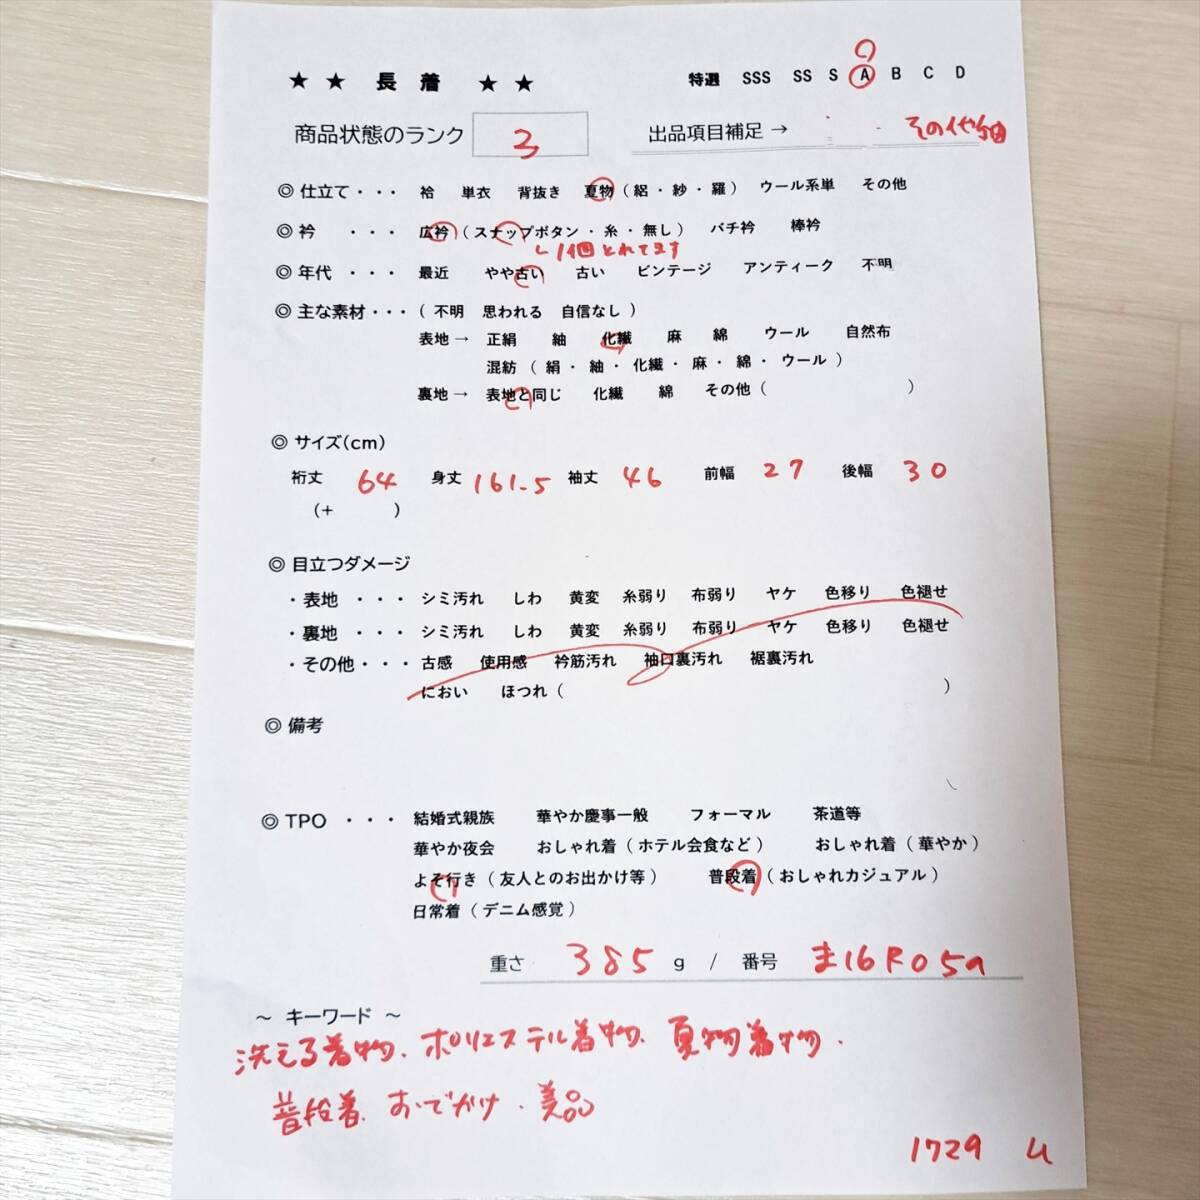 ★ ★ 長 着 ★ ★ 特選 SSS SS S A B C D
商品状態のランク 3 出品項目補足 → その他紬
◎ 仕立て・・・ 袷 単衣 背抜き 夏物 ( 絽・紗・羅 ) ウール系単 その他
◎ 衿 ・・・ 広衿 ( スナップボタン・糸・無し ) バチ衿 棒衿
1個とれてます
◎ 年代 ・・・ 最近 やや古い 古い ビンテージ アンティーク 不明
◎ 主な素材・・・( 不明 思われる 自信なし )
表地 → 正絹 紬 化繊 麻 綿 ウール 自然布
混紡 ( 絹・紬・化繊・麻・綿・ウール )
裏地 → 表地と同じ 化繊 綿 その他 ( )
◎ サイズ(cm)
裄丈 64 身丈 161.5 袖丈 46 前幅 27 後幅 30
(+ )
◎ 目立つダメージ
・表地 ・・・ シミ汚れ しわ 黄変 糸弱り 布弱り ヤケ 色移り 色褪せ
・裏地 ・・・ シミ汚れ しわ 黄変 糸弱り 布弱り ヤケ 色移り 色褪せ
・その他・・・ 古感 使用感 衿筋汚れ 袖口裏汚れ 裾裏汚れ
におい ほつれ ( )
◎ 備考
◎ TPO ・・・ 結婚式親族 華やか慶事一般 フォーマル 茶道等
華やか夜会 おしゃれ着 ( ホテル会食など ) おしゃれ着 ( 華やか )
よそ行き ( 友人とのお出かけ等 ) 普段着 ( おしゃれカジュアル )
日常着 ( デニム感覚 )
重さ 385 g / 番号 ま16R05a
~ キーワード ~
洗える着物、ポリエステル着物、夏物着物、
普段着、おでかけ、美品
1729 ム